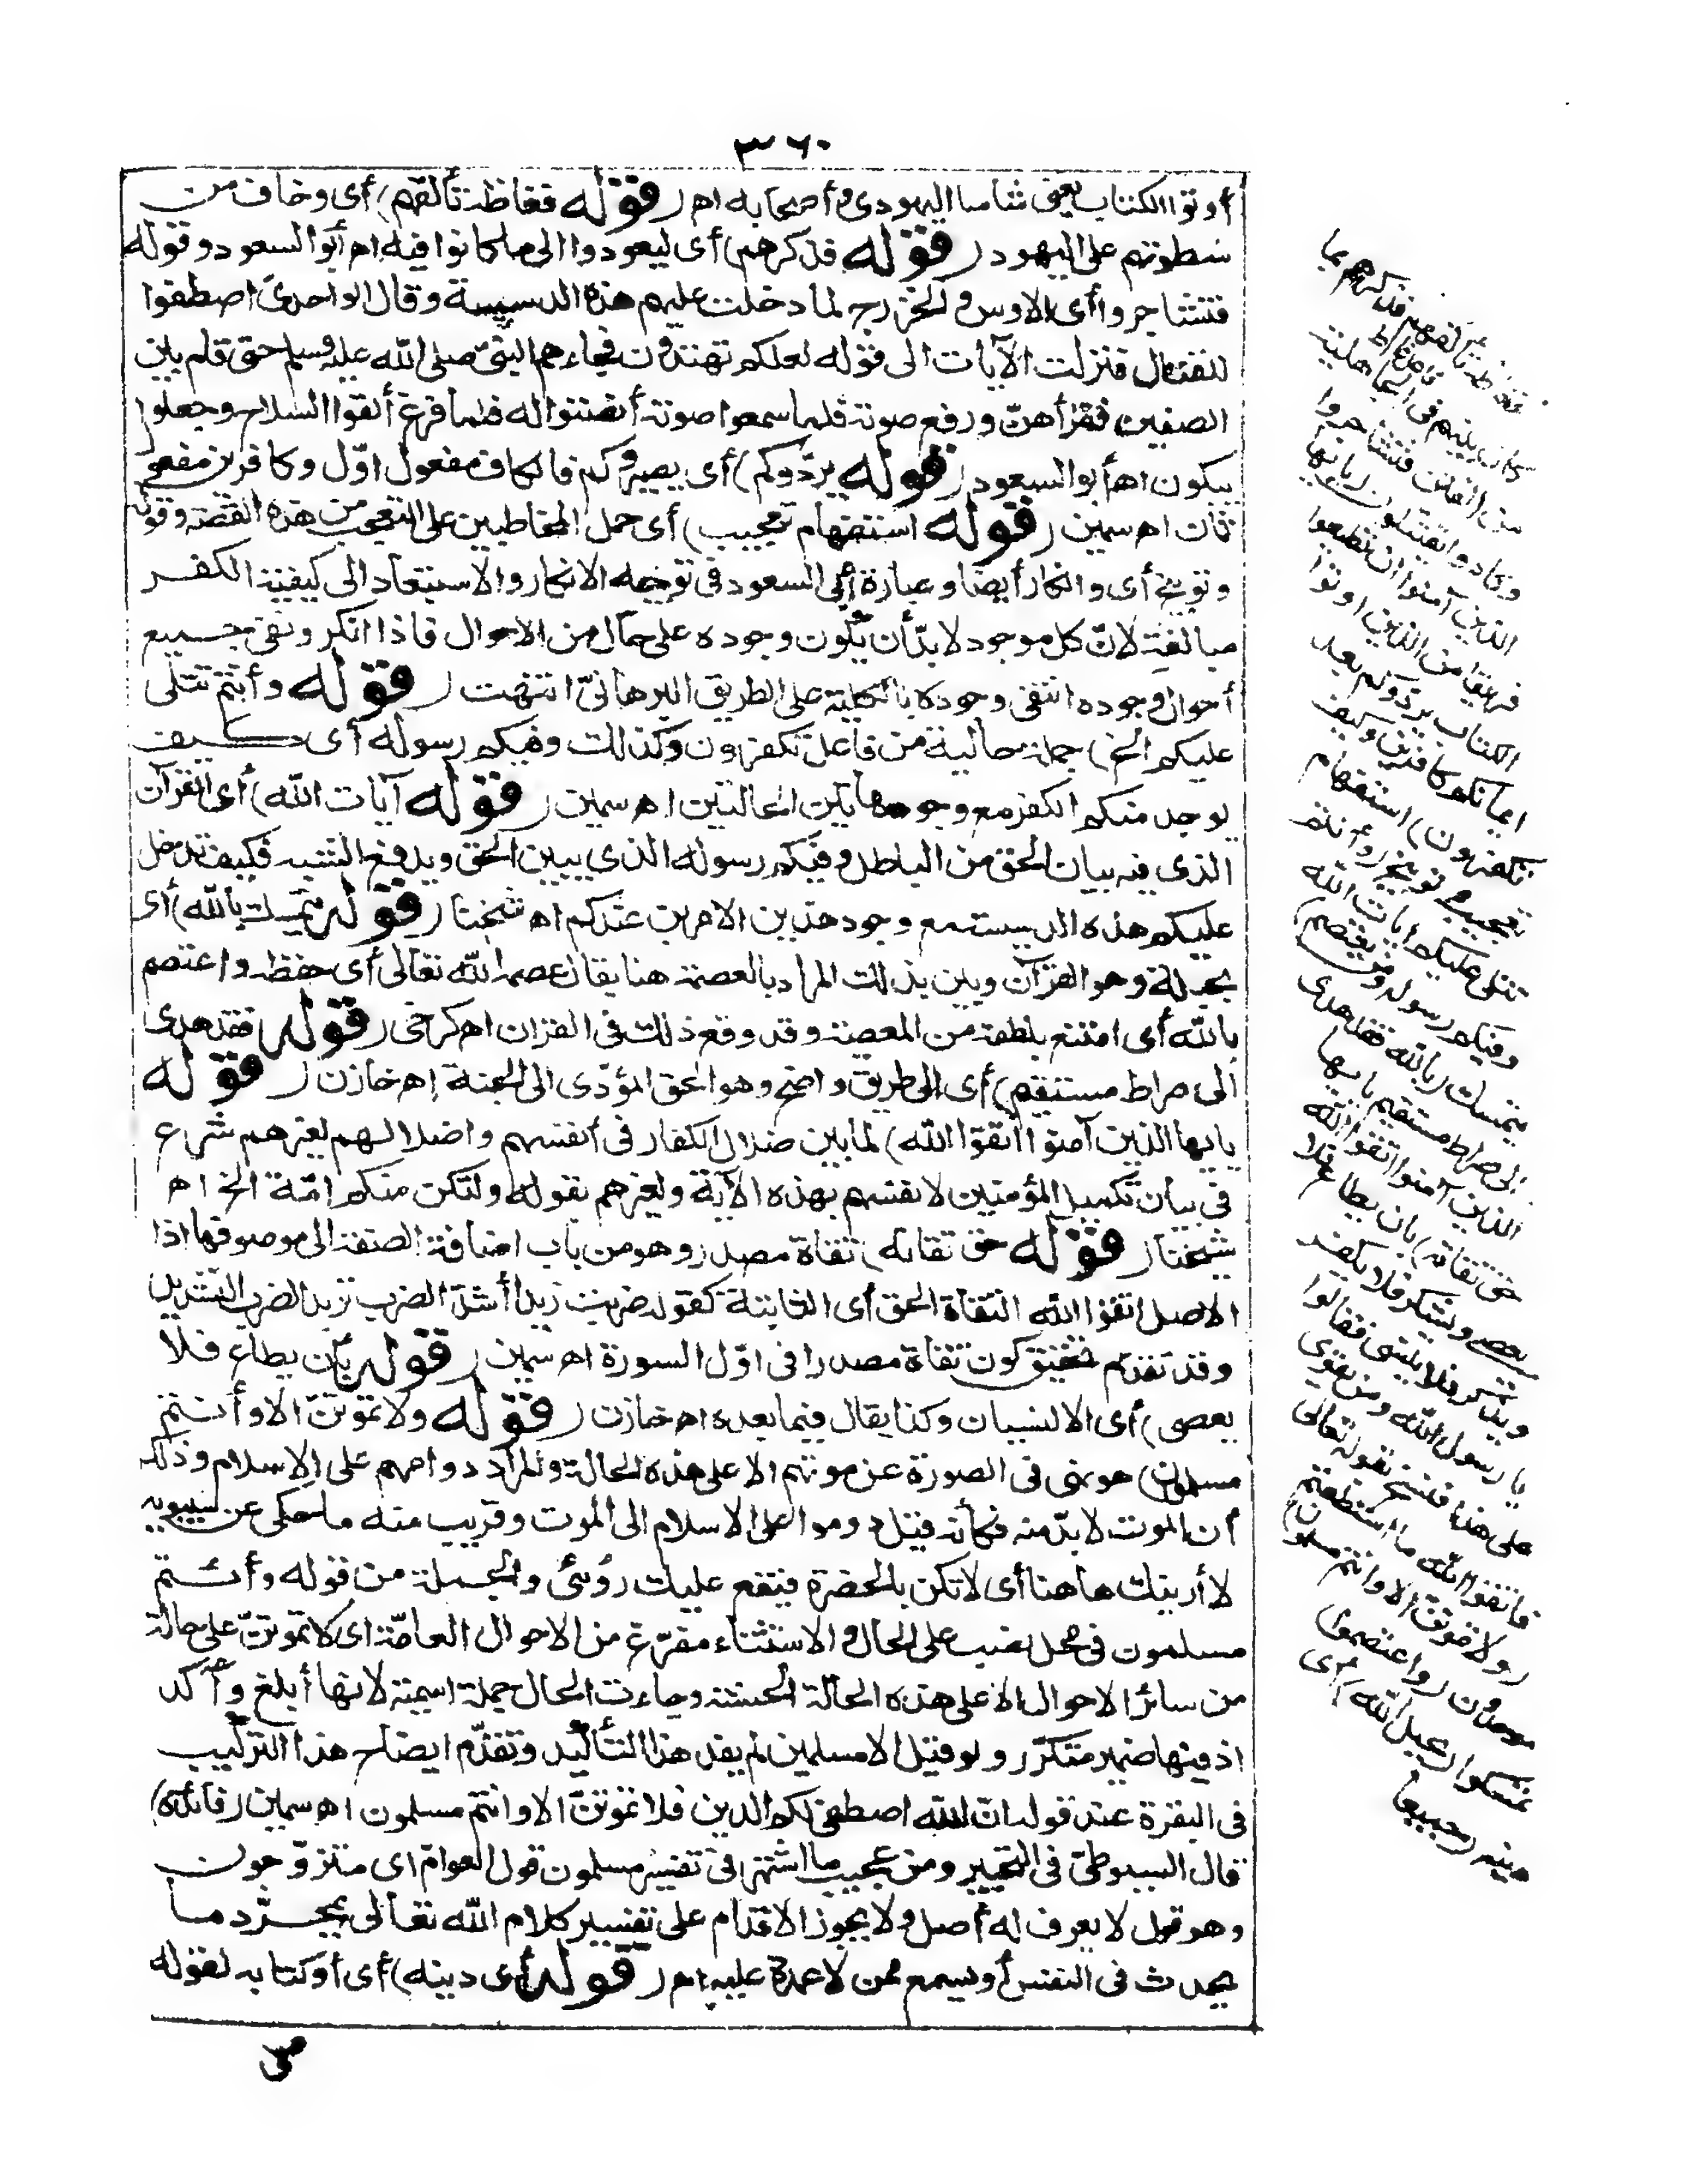 ٣٦٠
أوتوا الكتاب يعني شاسا اليهودي وأصحابه اه (قوله فغاظه تألفهم) أي وخاف من
سطوتهم على اليهود (قوله فذكرهم) أي ليعودوا الى ما كانوا فيه اه أبو السعود وقوله
فتشاجروا أي الاوس والخزرج لما دخلت عليهم هذه الدسيسة وقال الواحدي اصطفوا
للقتال فنزلت الآيات الى قوله لعلكم تهتدون فجاءهم النبي صلى الله عليه وسلم حتى قام بين
الصفين فقرأهن ورفع صوته فلما سمعوا صوته أنصتوا له فلما فرغ ألقوا السلاح وجعلوا
يبكون اه أبو السعود (قوله يردوكم) أي يصيروكم فالكاف مفعول اول وكافرين مفعول
ثان اه سمين (قوله استفهام تعجيب) أي حمل المخاطبين على التعجب من هذه القصة وقوله
وتوبيخ أي وانكار أيضا وعبارة أبي السعود في توجيه الانكار والاستبعاد الى كيفية الكفر
مبالغة لانّ كل موجود لا بدّ أن يكون وجوده على حال من الاحوال فاذا انكر ونفي جميع
أحوال وجوده انتفى وجوده بالكلية على الطريق البرهانيّ انتهت (قوله وأنتم تتلى
عليكم الخ) جملة حالية من فاعل تكفرون وكذلك وفيكم رسوله أي كيف
يوجد منكم الكفر مع وجود هاتين الحالتين اه سمين (قوله آيات الله) أي القرآن
الذي فيه بيان الحق من الباطل وفيكم رسوله الذي يبين الحق ويدفع الشبه فكيف تدخل
عليكم هذه الدسيسة مع وجود هذين الامرين عندكم اه شيخنا (قوله يتمسك بالله) أي
بحبله وهو القرآن وبين بذلك المراد بالعصمة هنا يقال عصمه الله تعالى أي حفظه واعتصم
بالله أي امتنع بلطفه من المعصية وقد وقع ذلك في القران اه كرخي (قوله فقد هدى
الى صراط مستقيم) أي الى طريق واضح وهو الحق المؤدّى الى الجنة اه خازن (قوله
يايها الذين آمنوا اتقوا الله) لما بين ضلال الكفار في أنفسهم واضلالهم لغيرهم شرع
في بيان تكميل المؤمنين لانفسهم بهذه الآية ولغيرهم بقوله ولتكن منكم امّة الخ اه
شيخنا (قوله حق تقاته) تقاة مصدر وهو من باب اضافة الصفة الى موصوفها اذا
الاصل اتقوا الله التقاة الحق أي الثابتة كقوله ضربت زيدا أشدّ الضرب تريد الضرب الشديد
وقد تقدّم تحقيق كون تقاة مصدرا في اوّل السورة اه سمين (قوله بأن يطاع فلا
يعصى) أي الا لنسيان وكذا يقال فيما بعده اه خازن (قوله ولا تموتنّ الا وأنتم
مسلمون) هو نهي في الصورة عن موتهم الا على هذه الحالة والمراد دوامهم على الاسلام وذلك
أن الموت لا بدّ منه فكأنه قيل دوموا على الاسلام الى الموت وقريب منه ما حكى عن سيبويه
لا أرينك هاهنا أي لا تكن بالحضرة فيقع عليك رؤيتي والجملة من قوله وأنتم
مسلمون في محل نصب على الحال والاستثناء مفرّغ من الاحوال العامّة اى لا تموتنّ على حالة
من سائر الاحوال الا على هذه الحالة الحسنة وجاءت الحال جملة اسمية لانها أبلغ وآكد
اذ فيها ضمير متكرّر ولو قيل الا مسلمين لم يفد هذا التأكيد وتقدّم ايضاح هذا التركيب
في البقرة عند قوله انّ الله اصطفى لكم الدين فلا تموتنّ الا وانتم مسلمون اه سمين (فائدة)
قال السيوطيّ في التحبير ومن عجيب ما اشتهر في تفسير مسلمون قول العوام اى متزوّجون
وهو قول لا يعرف له أصل ولا يجوز الاقدام على تفسير كلام الله تعالى بمجرّد ما
يحدث في النفس أو يسمع ممن لا عمدة عليه اه (قوله أي دينه) أي أو كتابه لقوله
فغاظه تألفهم فذكرهم بما
كان بينهم في الجاهلية
من الفتن فتشاجروا
وكادوا يقتتلون (يا أيها
الذين آمنوا ان تطيعوا
فريقا من الذين اوتوا
الكتاب يردوكم بعد
ايمانكم كافرين وكيف
تكفرون) استفهام
تعجيب وتوبيخ (وأنتم
تتلى عليكم ايات الله
وفيكم رسوله ومن يعتصم)
يتمسك (بالله فقد هدى
الى صراط مستقيم يا يها
الذين آمنوا اتقوا الله
حق تقاته) بأن يطاع فلا
يعصى ويشكر فلا يكفر
ويذكر فلا ينسى فقالوا
يا رسول الله ومن يقوى
على هذا فنسخ بقوله تعالى
فاتقوا الله ما استطعتم
(ولا تموتن الا وانتم مسلمون)
موحدون (واعتصموا)
تمسكوا (بحبل الله) أي
دينه (جميعا